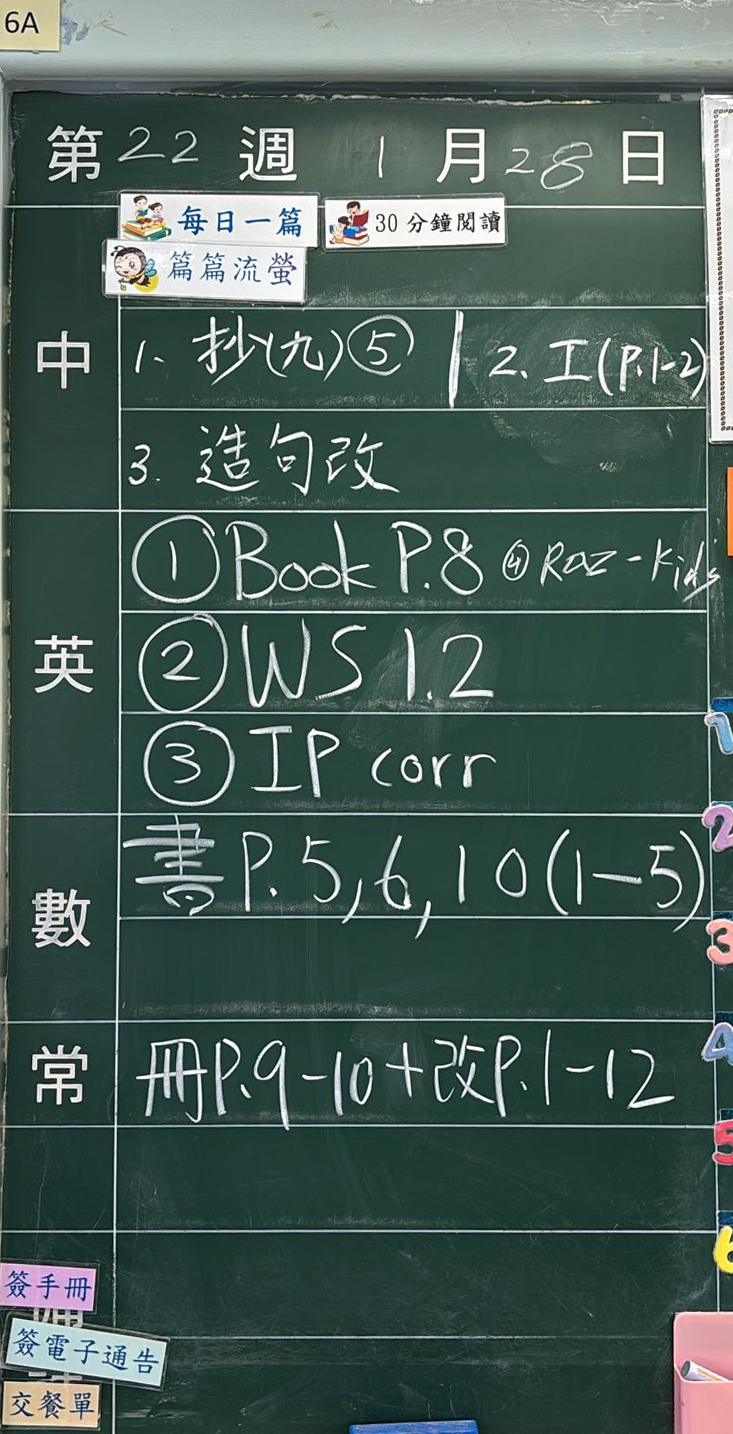 6A
第22週 1月28日
每日一篇 30分鐘閱讀
篇篇流螢
中
1. 抄(九)⑤ | 2. 工(P.1-2)
3. 造句改
英
① Book P.8 ④ RAZ-Kids
② WS 1.2
③ IP corr
數
書 P. 5, 6, 10 (1-5)
常
冊P.9-10+改P.1-12
簽手冊
簽電子通告
交餐單
1
2
3
4
5
6